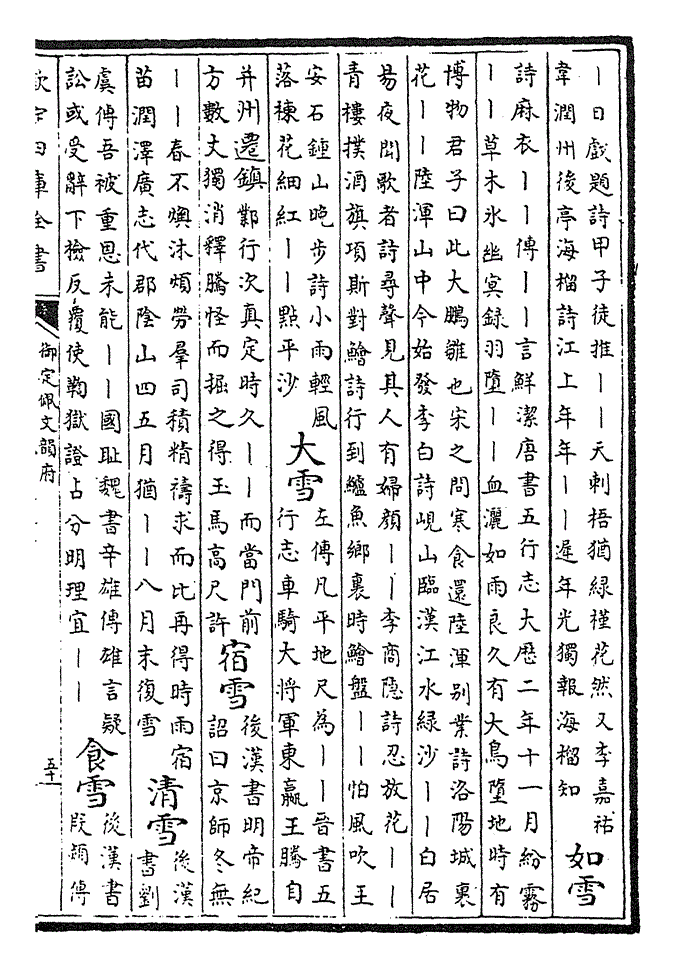 丨日戲題詩甲子徒推丨丨天刺梧猶緑槿花然又李嘉祐
韋潤州後亭海榴詩江上年年丨丨遲年光獨報海榴知
如雪
詩麻衣丨丨傳丨丨言鮮潔唐書五行志大厯二年十一月紛霧
丨丨草木氷幽冥録羽墮丨丨血灑如雨良久有大鳥墮地時有
博物君子曰此大鵬雛也宋之問寒食還陸渾别業詩洛陽城裏
花丨丨陸渾山中今始發李白詩峴山臨漢江水緑沙丨丨白居
易夜聞歌者詩尋聲見其人有婦顔丨丨李商隱詩忍放花丨丨
青樓撲酒旗項斯對鱠詩行到鱸魚鄉裏時鱠盤丨丨怕風吹王
安石鍾山晚步詩小雨輕風
落楝花細紅丨丨點平沙
大雪
左傳凡平地尺為丨丨晉書五
行志車騎大將軍東嬴王騰自
并州遷鎮鄴行次真定時久丨丨而當門前
方數丈獨消釋騰怪而掘之得玉馬高尺許
宿雪
後漢書明帝紀
詔曰京師冬無
丨丨春不燠沐煩勞羣司積精禱求而比再得時雨宿
苗潤澤廣志代郡陰山四五月猶丨丨八月末復雪
清雪
後漢
書劉
虞傳吾被重恩未能丨丨國耻魏書辛雄傳雄言疑
訟或受辭下檢反覆使鞫獄證占分明理宜丨丨
食雪
後漢書
段熲傳
欽定四庫全書
御定佩文韻府
五十